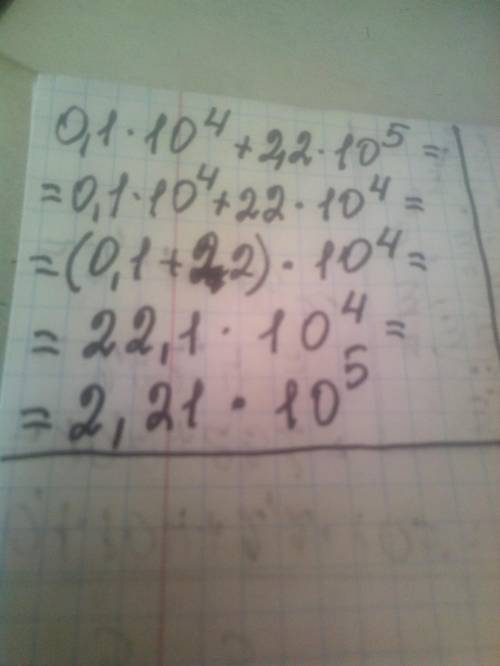 0,1·10⁴+2,2·10⁵=
=0,1·10⁴+22·10⁴=
=(0,1+22)·10⁴=
=22,1·10⁴=
=2,21·10⁵